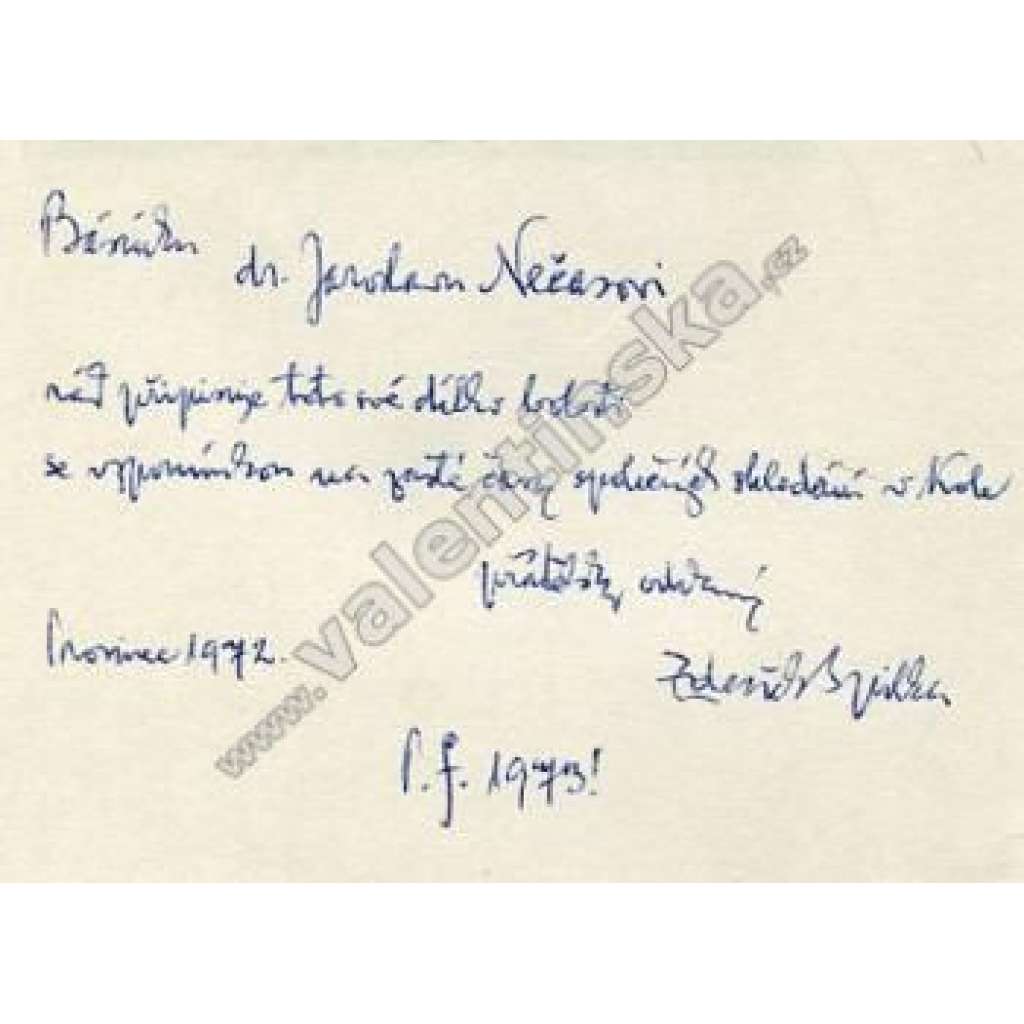 Básníku
dr. Jaroslavu Nečasovi
rád připisuje toto své dílko
se vzpomínkou na zašlé časy společných skládání v Kole
přátelsky oddaný
Prosinec 1972.
Zdeněk Spilka
P. f. 1973!
www.valentinska.cz